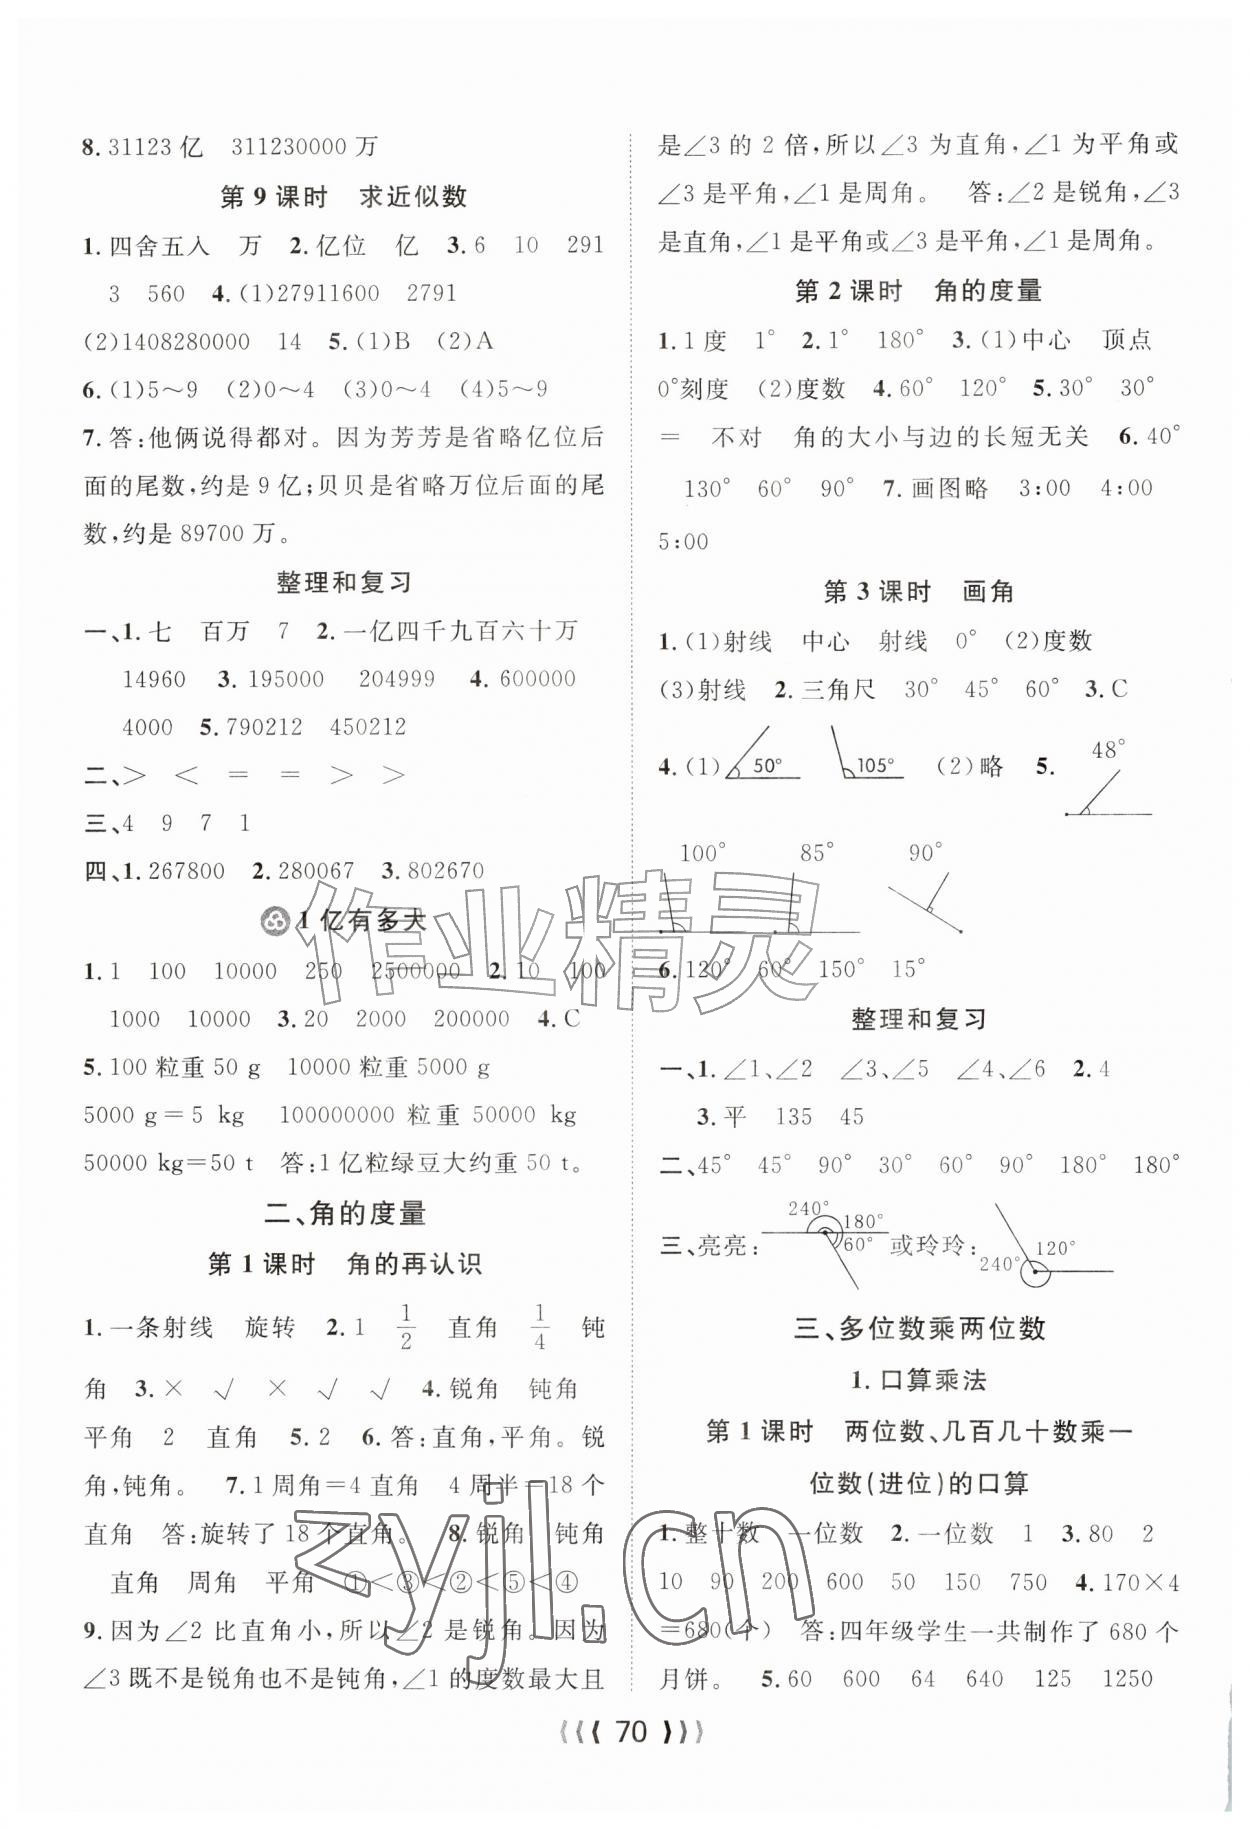 8.31123亿　311230000万
第9课时　求近似数
1.四舍五入　万　2.亿位　亿　3.6　10　291
3　560　4.(1)27911600　2791
(2)1408280000　14　5.(1)B　(2)A
6.(1)5～9　(2)0～4　(3)0～4　(4)5～9
7.答:他俩说得都对。因为芳芳是省略亿位后
面的尾数,约是9亿;贝贝是省略万位后面的尾
数,约是89700万。
整理和复习
一、1.七　百万　7　2.一亿四千九百六十万
14960　3.195000　204999　4.600000
4000　5.790212　450212
二、＞　＜　＝　＝　＞　＞
三、4　9　7　1
四、1.267800　2.280067　3.802670
1亿有多大
1.1　100　10000　250　2500000　2.10　100
1000　10000　3.20　2000　200000　4.C
5.100粒重50 g　10000粒重5000 g
5000 g＝5 kg　100000000粒重50000 kg
50000 kg＝50 t　答:1亿粒绿豆大约重50 t。
二、角的度量
第1课时　角的再认识
1.一条射线　旋转　2.1　1/2　直角　1/4　钝
角　3.×　√　×　√　√　4.锐角　钝角
平角　2　直角　5.2　6.答:直角,平角。锐
角,钝角。　7.1周角＝4直角　4周半＝18个
直角　答:旋转了18个直角。　8.锐角　钝角
直角　周角　平角　①＜③＜②＜⑤＜④
9.因为∠2比直角小,所以∠2是锐角。因为
∠3既不是锐角也不是钝角,∠1的度数最大且
是∠3的2倍,所以∠3为直角,∠1为平角或
∠3是平角,∠1是周角。　答:∠2是锐角,∠3
是直角,∠1是平角或∠3是平角,∠1是周角。
第2课时　角的度量
1.1度　1°　2.1°　180°　3.(1)中心　顶点
0°刻度　(2)度数　4.60°　120°　5.30°　30°
＝　不对　角的大小与边的长短无关　6.40°
130°　60°　90°　7.画图略　3:00　4:00
5:00
第3课时　画角
1.(1)射线　中心　射线　0°　(2)度数
(3)射线　2.三角尺　30°　45°　60°　3.C
4.(1)　50°　105°　(2)略　5.　48°
100°　85°　90°
6.120°　60°　150°　15°
整理和复习
一、1.∠1、∠2　∠3、∠5　∠4、∠6　2.4
3.平　135　45
二、45°　45°　90°　30°　60°　90°　180°　180°
三、亮亮:　240°　180°　60°　或玲玲:　240°　120°
三、多位数乘两位数
1.口算乘法
第1课时　两位数、几百几十数乘一
位数(进位)的口算
1.整十数　一位数　2.一位数　1　3.80　2
10　90　200　600　50　150　750　4.170×4
＝680(个)　答:四年级学生一共制作了680个
月饼。　5.60　600　64　640　125　1250
70
作业精灵
zyjl.cn